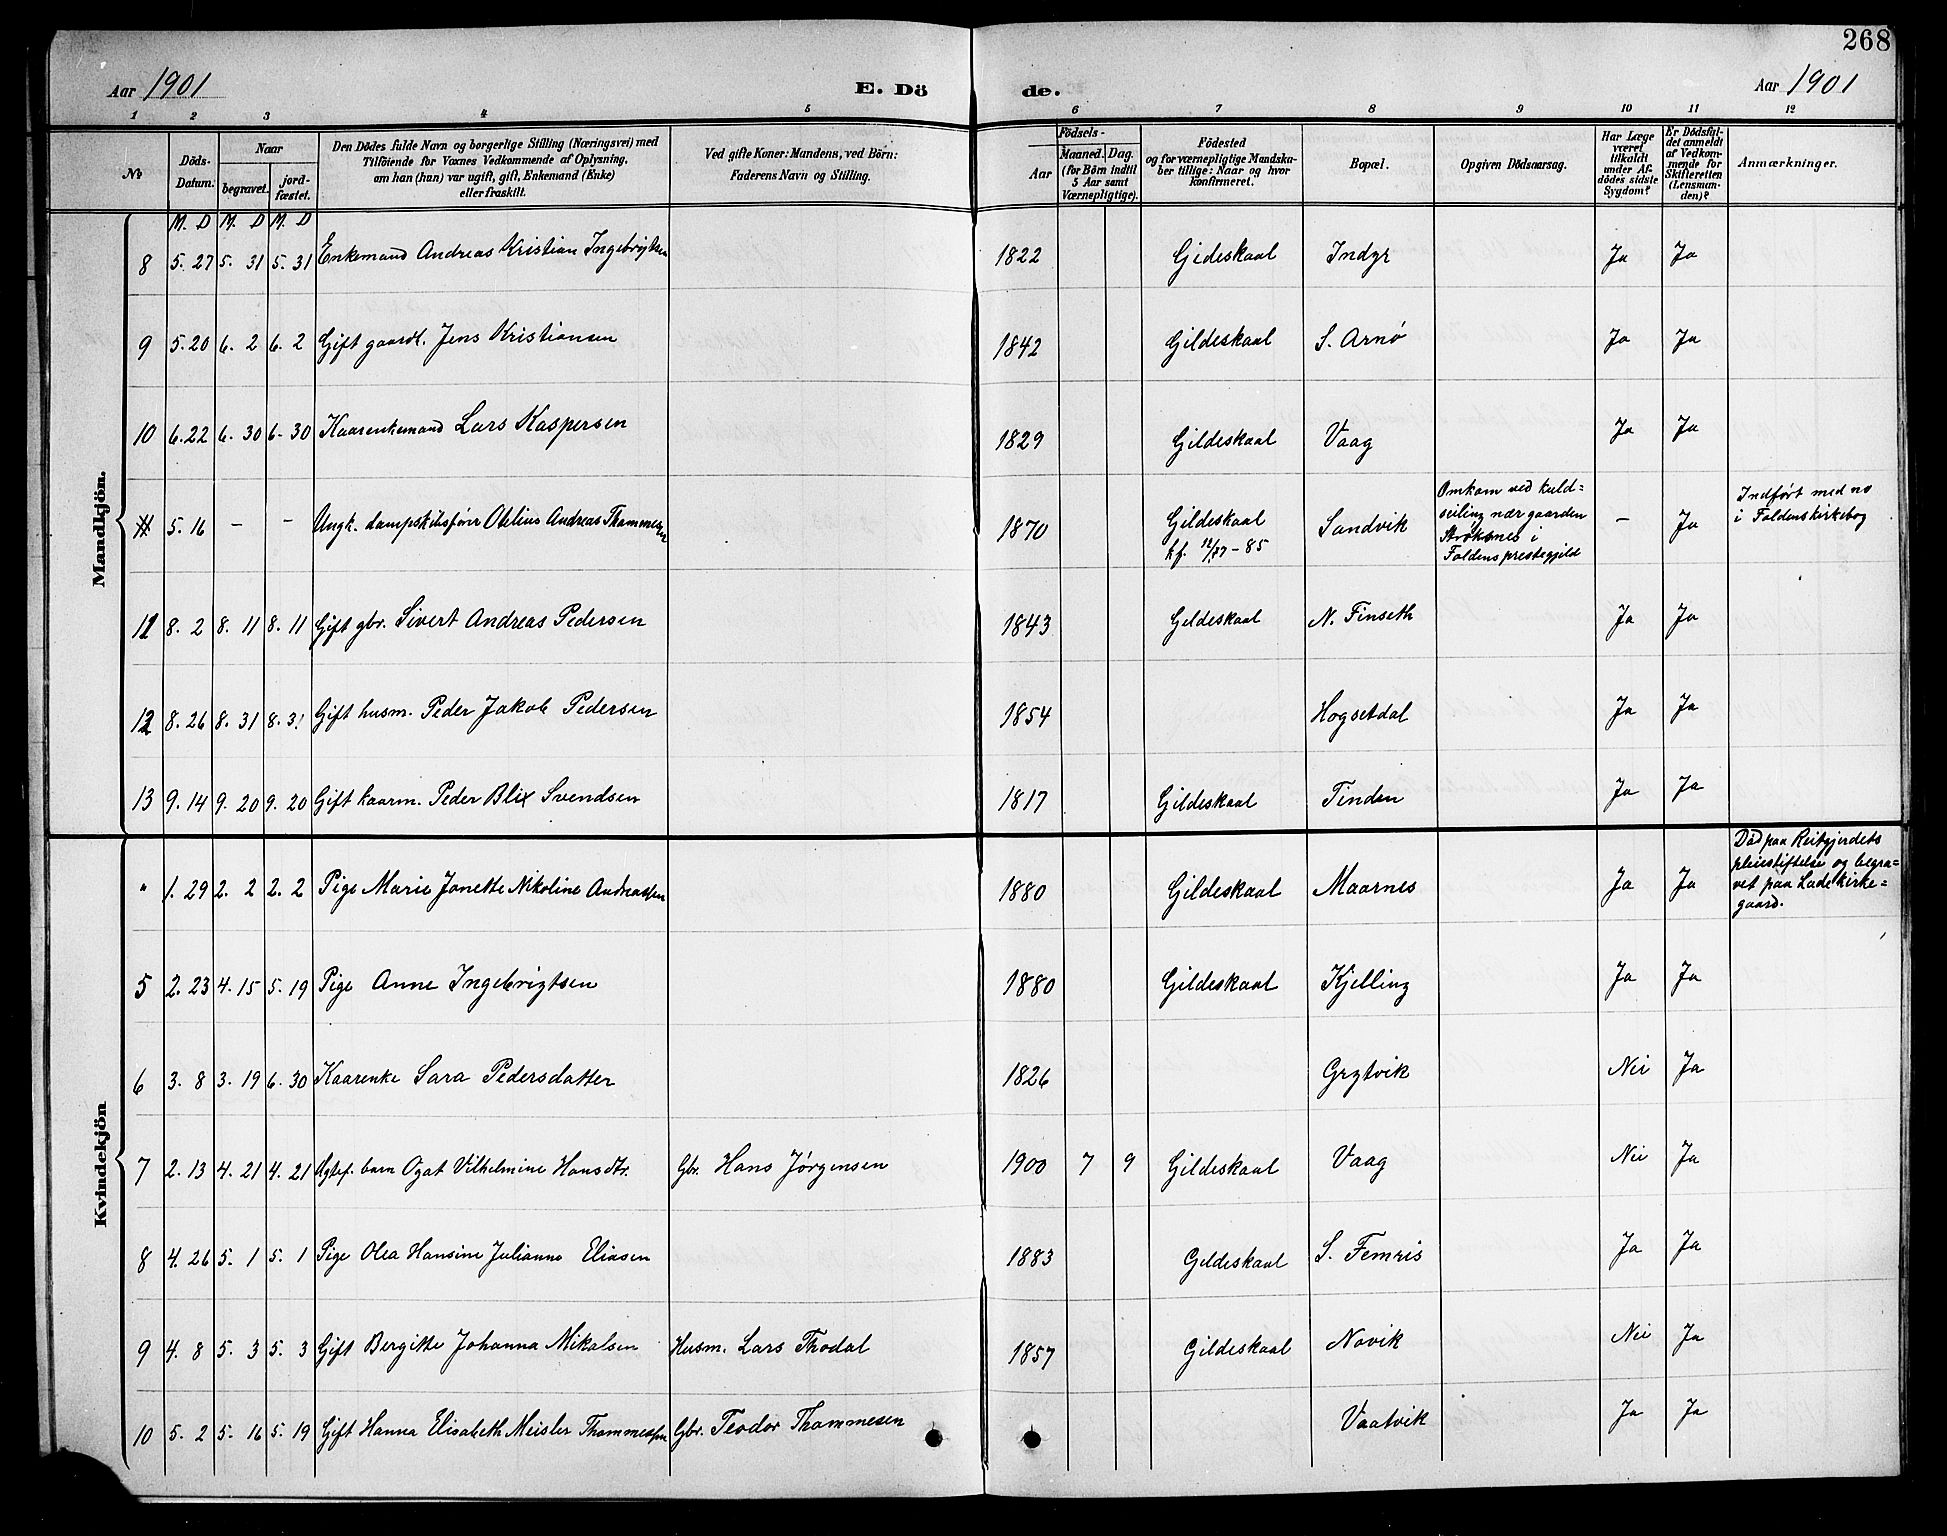 268
Aar 1901 E. Dö de. Aar 1901
1 2 3 4 5 6 7 8 9 10 11 12
No
Döds-Datum.
Naar
begravet.
jord-fæstet.
Den Dödes fulde Navn og borgerlige Stilling (Næringsvei) med
Tilföiende for Voxnes Vedkommende af Oplysning,
om han (hun) var ugift, gift, Enkemand (Enke)
eller fraskilt.
Ved gifte Koner: Mandens, ved Börn:
Faderens Navn og Stilling.
Födsels-
Aar
Maaned. Dag.
(for Börn indtil
5 Aar samt
Værnepligtige).
Födested
og for værnepligtige Mandska-
ber tillige: Naar og hvor
konfirmeret.
Bopæl.
Opgiven Dödsaarsag.
Har Læge
været
tilkaldt
under Af-
dödes sidste
Sygdom?
Er Dödsfal-
det anmeldt
af Vedkom-
mende for
Skifteretten
(Lensman-
den)?
Anmærkninger.
Mandkjön.
M. D M. D M. D
8 5. 27 5. 31 5. 31 Enkemand Andreas Kristian Ingebrigtsen 1822 Gideskaal Indyr Ja Ja
9 5. 20 6. 2 6. 2 Gift gaardt. Jens Kristiansen 1842 Gildeskaal S. Arnø Ja Ja
10 6. 22 6. 30 6. 30 Kaarenkemand Lars Kaspersen 1829 Gildeskaal Vaag Ja Ja
5. 16 – – Ungk. dampskibsfører Otelius Andreas Thommesen 1870 Gildeskaal Sandvik – Ja
kf. – 85
Omkom ved kuld=
seiling nær gaarden
Strøksnes i
Foldens prestegjeld
Indført med no
i Foldens kirkebog
11 8. 2 8. 11 8. 11 Gift gbr. Sivert Andreas Pedersen 1843 Geldeskaal N. Finseth Ja Ja
12 8. 26 8. 31 8. 31 Gift husm. Peder Jakob Pedersen 1854 Hogsetdal Ja Ja
13 9. 14 9. 20 9. 20 Gift kaarm. Peder Blix Svendsen 1817 Gildeskaal Finden Ja Ja
Kvindekjön
" 1. 29 2. 2 2. 2 Pige Marie Janette Nikoline Andreassen 1880 Gildeskaal Maarnes Ja Ja
Død paa Reitgjerdets
pleiestiftelse og begra=
vet paa Lade kirke=
gaard.
5 2. 23 4. 15 5. 19 Pige Anne Ingebrigtsen 1880 Gildeskaal Kjelling Ja Ja
6 3. 8 3. 19 6. 30 Kaarenke Sara Pedersdatter 1826 Grytvik Nei Ja
7 2. 13 4. 21 4. 21 Ægtef. barn Ogat Vilhelmine Hansdtr. Gbr. Hans Jørgensen 1900 7 9 Gildeskaal Vaag Nei Ja
8 4. 26 5. 1 5. 1 Pige Olea Hansine Julianne Eliasen 1883 Gildeskaal S. Femris Ja Ja
9 4. 8 5. 3 5. 3 Gift Bergitte Johanna Mikalsen Husm. Lars Thodal 1857 Gildeskaal Novik Nei Ja
10 5. 2 5. 16 5. 19 Gift Hanna Elisabeth Meisler Thommessen Gbr. Teodor Thommesen Vaatvik Ja Ja